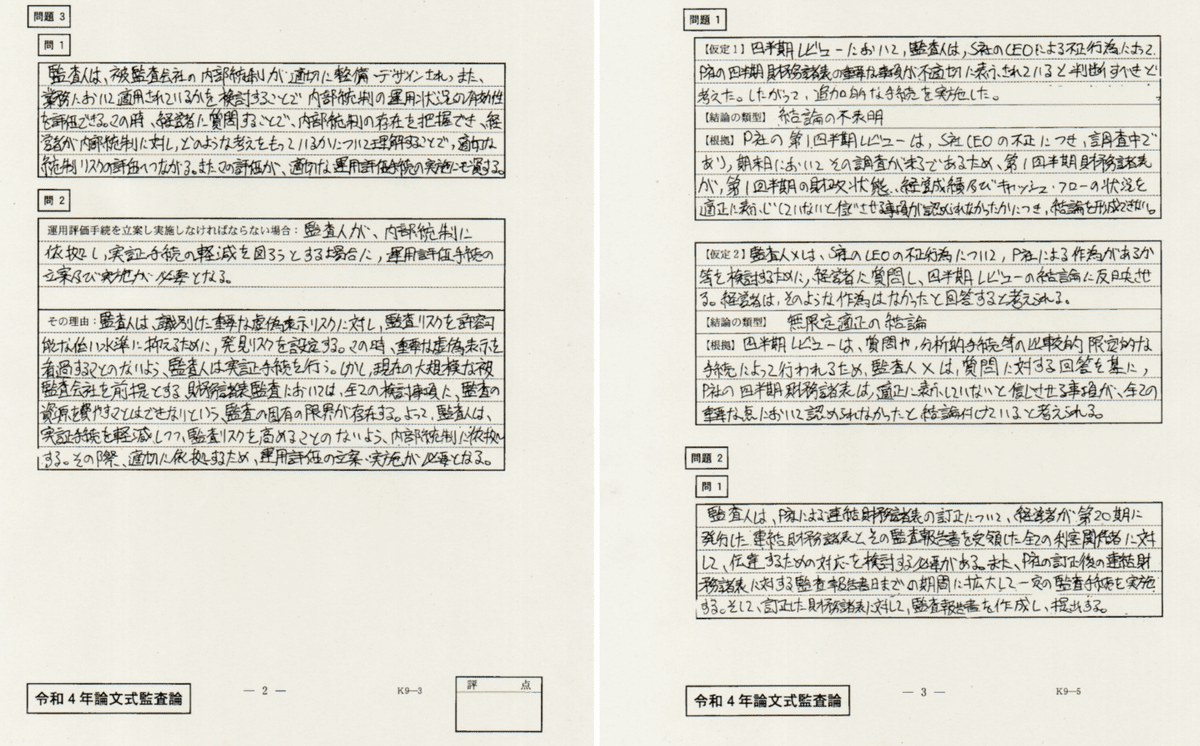 問題 3
問 1
監査人は、被監査会社の内部統制が適切に整備・デザインされ、また、
業務において適用されているかを検討することで内部統制の運用状況の有効性
を評価できる。この時、経営者に質問することで、内部統制の存在を把握でき、経
営者が内部統制に対し、どのような考えをもっているかについて理解することで、適切な
統制リスクの評価へつながる。またこの評価が、適切な運用評価手続の実施にも資する。
問 2
運用評価手続を立案し実施しなければならない場合：監査人が、内部統制に
依拠し、実証手続の軽減を図ろうとする場合に、運用評価手続の
立案及び実施が必要となる。
その理由：監査人は、識別した重要な虚偽表示リスクに対し、監査リスクを許容可
能な低い水準に抑えるために、発見リスクを設定する。この時、重要な虚偽表示を
看過することのないよう、監査人は実証手続を行う。しかし、現在の大規模な被
監査会社を前提とする、財務諸表監査においては、全ての検討事項に、監査の
資源を費やすことはできないという、監査の固有の限界が存在する。よって、監査人は、
実証手続を軽減しつつ、監査リスクを高めることのないよう、内部統制に依拠
する。その際、適切に依拠するため、運用評価の立案・実施が必要となる。
令和4年論文式監査論
— 2 —
K9—3
評 点
問題 1
【仮定1】四半期レビューにおいて、監査人は、S社のCEOによる不正行為において、
P社の四半期財務諸表の重要な事項が不適切に表示されていると判断すべきと
考えた。したがって、追加的な手続を実施した。
【結論の類型】 結論の不表明
【根拠】P社の第1四半期レビューは、S社CEOの不正につき、調査中で
あり、期末日においてその調査が未了であるため、第1四半期財務諸表
が、第1四半期の財政状態、経営成績及びキャッシュ・フローの状況を
適正に表示していないと信じさせる事項が認められなかったかにつき、結論を形成できない。
【仮定2】監査人Xは、S社のCEOの不正行為について、P社による作為があるか
等を検討するために、経営者に質問し、四半期レビューの結論に反映させ
る。経営者は、そのような作為はなかったと回答すると考えられる。
【結論の類型】 無限定適正の結論
【根拠】四半期レビューは、質問や、分析的手続等の比較的限定的な
手続によって行われるため、監査人Xは、質問に対する回答を基に、
P社の四半期財務諸表は、適正に表示していないと信じさせる事項が、全ての
重要な点において認められなかったと結論付けていると考えられる。
問題 2
問 1
監査人は、P社による連結財務諸表の訂正について、経営者が第20期に
発行した連結財務諸表とその監査報告書を受領した全ての利害関係者に対
して、伝達するための対応を検討する必要がある。また、P社の訂正後の連結財
務諸表に対する監査報告書日までの期間に拡大して一定の監査手続を実施
する。そして、訂正した財務諸表に対して、監査報告書を作成し、提出する。
令和4年論文式監査論
— 3 —
K9—5